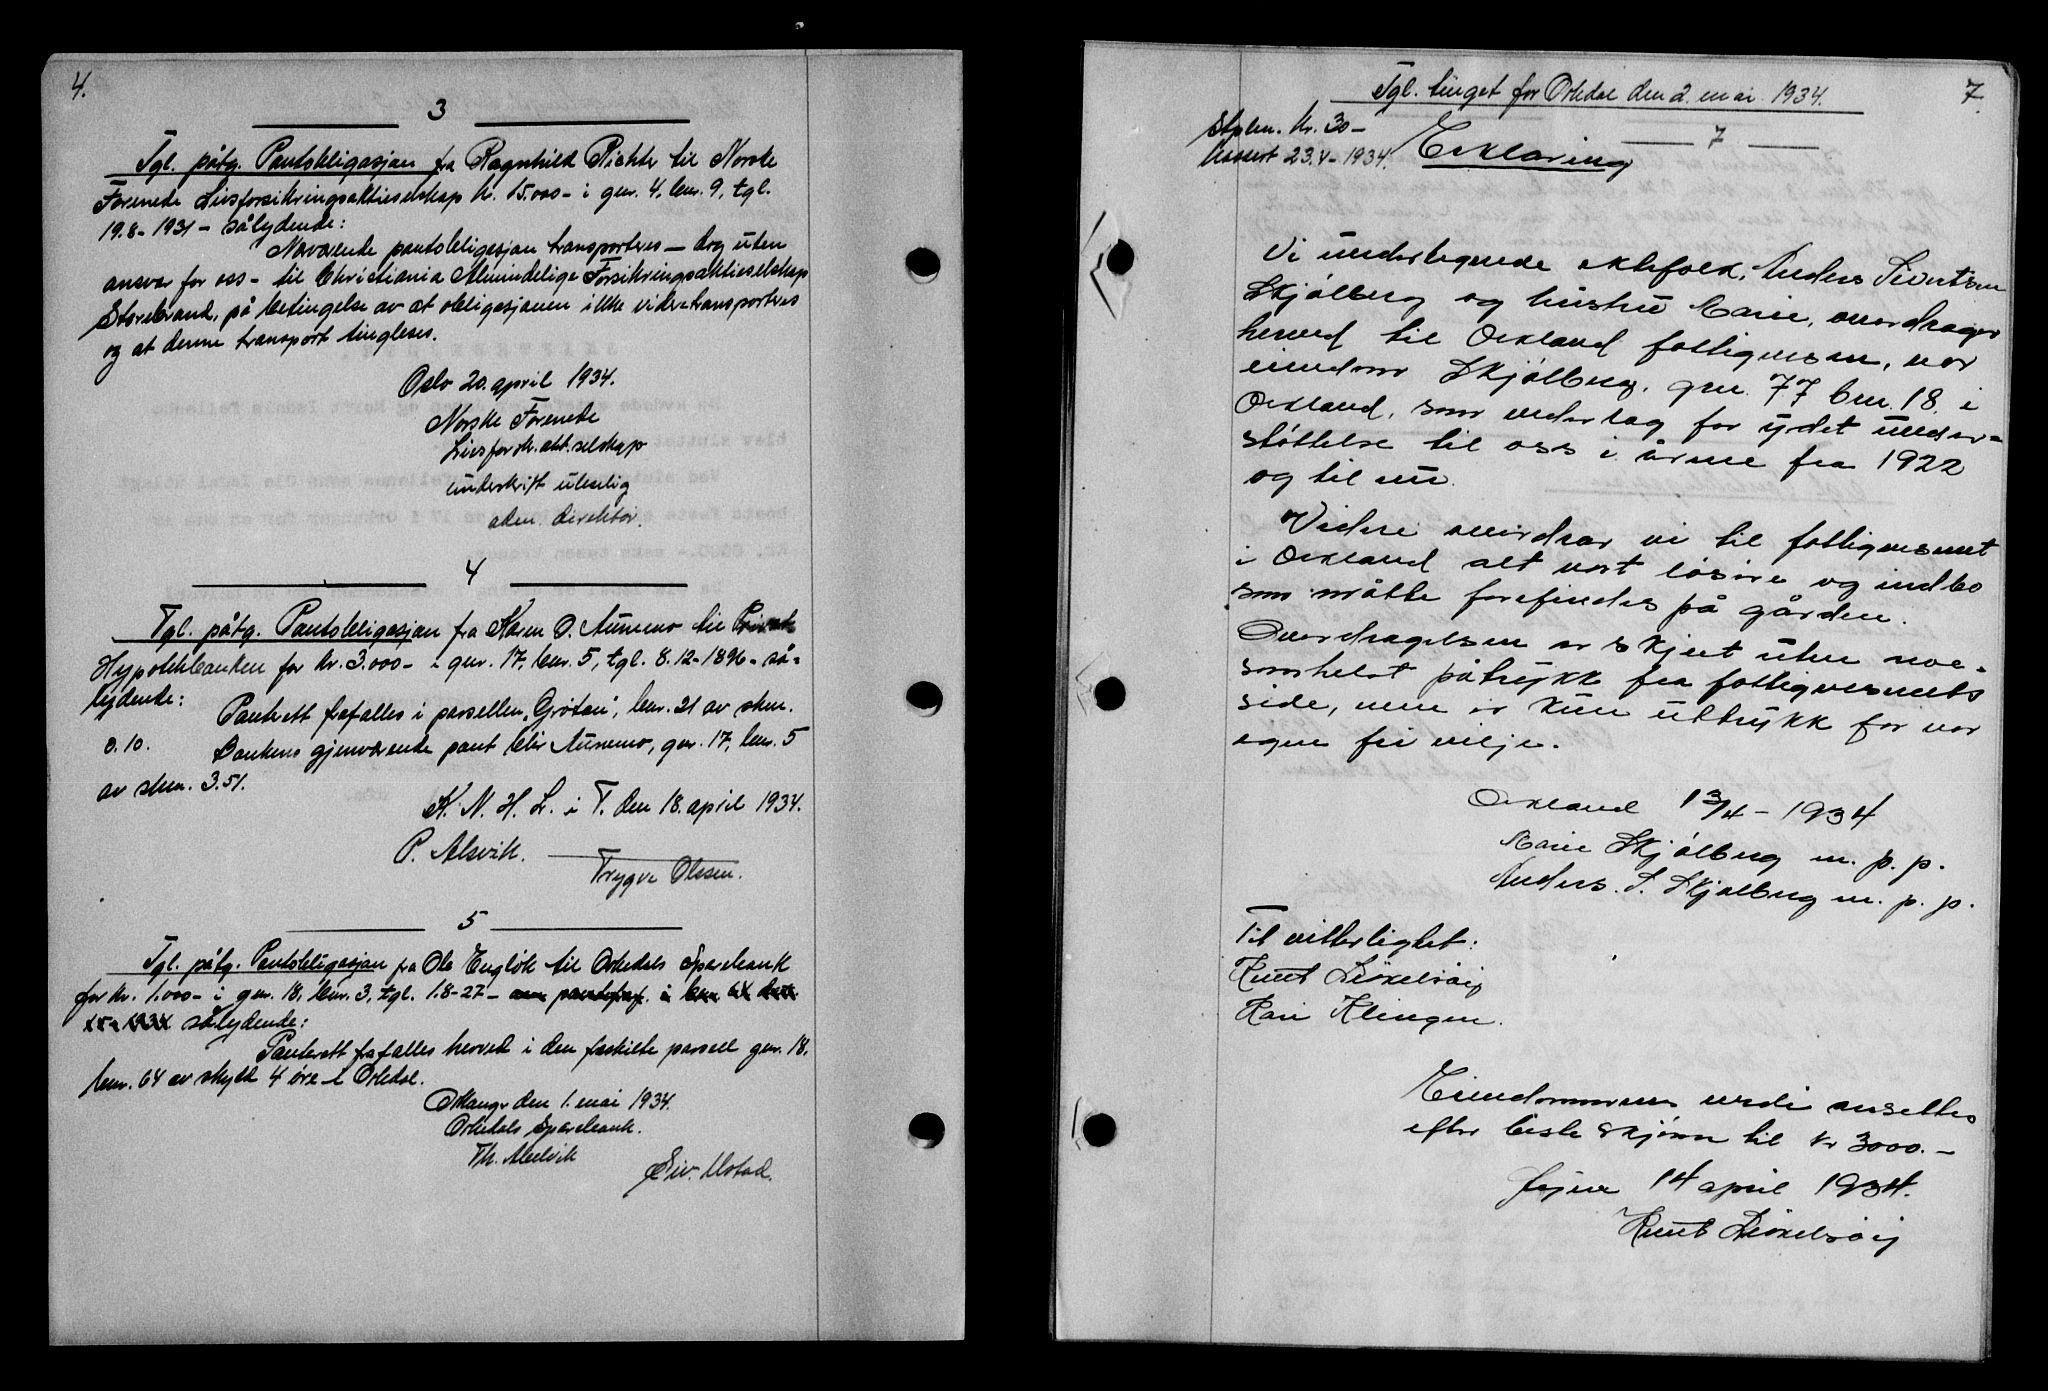 4.
3
Tgl. påtg. Pantobligasjon fra Ragnhild Richter til Norske
Forenede Livsforsikringsaktieselskap kr. 15.000- i gnr. 4, bnr. 9, tgl.
19.8-1931 - sålydende:
Nærværende pantobligasjon transporteres - dog uten
ansvar for oss - til Christiania Almindelige Forsikringsaktieselskap
Storebrand, på betingelse av at obligasjonen ikke videretransporteres
og at denne transport tingleses.
Oslo 20. april 1934.
Norske Forenede
Livsfors. akt. selskap
underskrift uleselig
adm. direktør.
4
Tgl. påtg. Pantobligasjon fra Karen O. Aunemo til Private
Hypotekbanken for kr. 3.000- i gnr. 17, bnr. 5, tgl. 8.12-1896 - så=
lydende:
Panterett frafalles i parsellen „Grøtan", bnr. 21 av skm.
0.10. Bankens gjenværende pant blir Aunemo, gnr. 17, bnr. 5
av skm. 3.51.
K. N. H. L. i T. den 18. april 1934.
P. Alsvik.
Trygve Olssen.
5
Tgl. påtg. Pantobligasjon fra Ola Engløk til Orkedals Sparebank
for kr. 1.000- i gnr. 18, bnr. 3, tgl. 1.8-27-
sålydende:
Panterett frafalles herved i den fraskilte parsell gnr. 18,
bnr. 64 av skyld 4 øre i Orkdal.
Orkanger den 1. mai 1934.
Orkedals Sparebank.
Th. Melvik
Eiv. Ustad.
Tgl. tinget for Orkdal den 2. mai 1934. 7
7
Stplm. Kr. 30-
Kassert 23.4-1934. Erklæring
Vi undertegnede ektefolk, Anders Sivertsen
Skjølberg og hustru Marie, overdrager
herved til Orkland fattigvesen, vor
eiendom Skjølberg, gnr. 77 bnr. 18. i
Orkland, som vederlag for ydet under=
støttelse til oss i årene fra 1922
og til nu.
Videre overdrar vi til fattigvesenet
i Orkland alt vort løsøre og indbo
som måtte forefindes på gården.
Overdragelsen er skjeet uten noe-
somhelst påtrykk fra fattigvesenets
side, men er kun uttrykk for vor
egen fri vilje.
Orkland 13/4 - 1934
Marie Skjølberg m. p. p.
Anders. S. Skjølberg m. p. p.
Til vitterlighet:
Knut
Kari Klingen.
Eiendommens verdi ansettes
efter beste skjønn til kr 3000.-
14 april 1934.
Knut